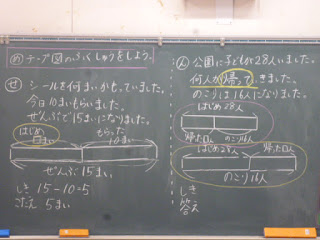 め テープ図のふくしゅうをしよう。
せ シールを何まいかもっていました。
今日10まいもらいました。
ぜんぶで15まいになりました。
はじめ
□まい
もらった
10まい
ぜんぶ15まい
しき 15-10=5
こたえ 5まい
公園に子どもが28人いました。
何人か帰って、きました。
のこりは16人になりました。
はじめ28人
帰った□人 のこり16人
はじめ28人 帰った□人
のこり16人
しき
答え